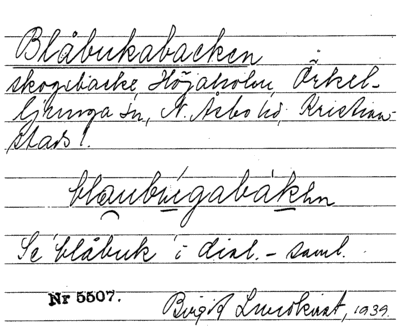 Blåbukabacken
skogsbacke, Höjaholm, Örkel-
ljunga sn, N. Åsbo hd, Kristian-
stads l.
blaubúgabákhn
Se 'blåbuk' i dial.-saml.
Nr 5507.
Birgit Lundkvist, 1939.